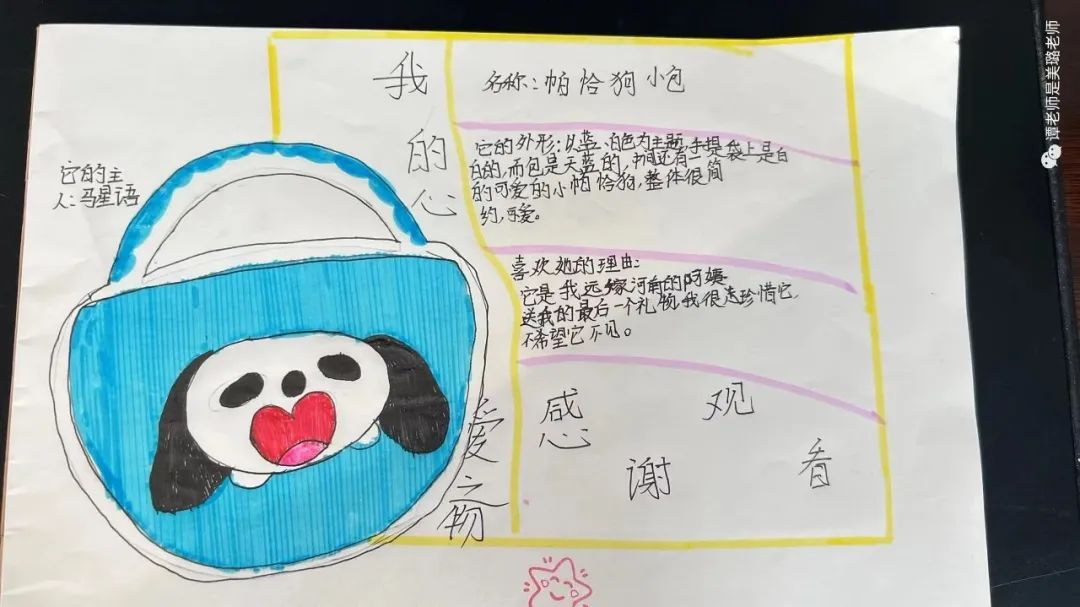 我的心爱之物
它的主
人:马星语
名称:帕恰狗小包
它的外形:以蓝、白色为主题,手提袋上是白
白的,而包是天蓝的,中间还有一
的可爱的小帕恰狗,整体很简
约,可爱。
喜欢她的理由:
它是我远嫁河南的阿姨
送我的最后一个礼物,我很珍惜它,
不希望它不见。
感谢观看
谭老师是美璐老师